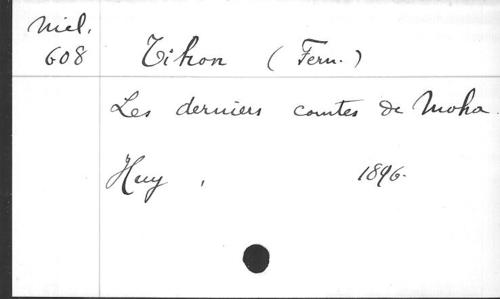 Miel.
608
Tihon (Fern.)
Les derniers comtes de Moha.
Huy, 1896.